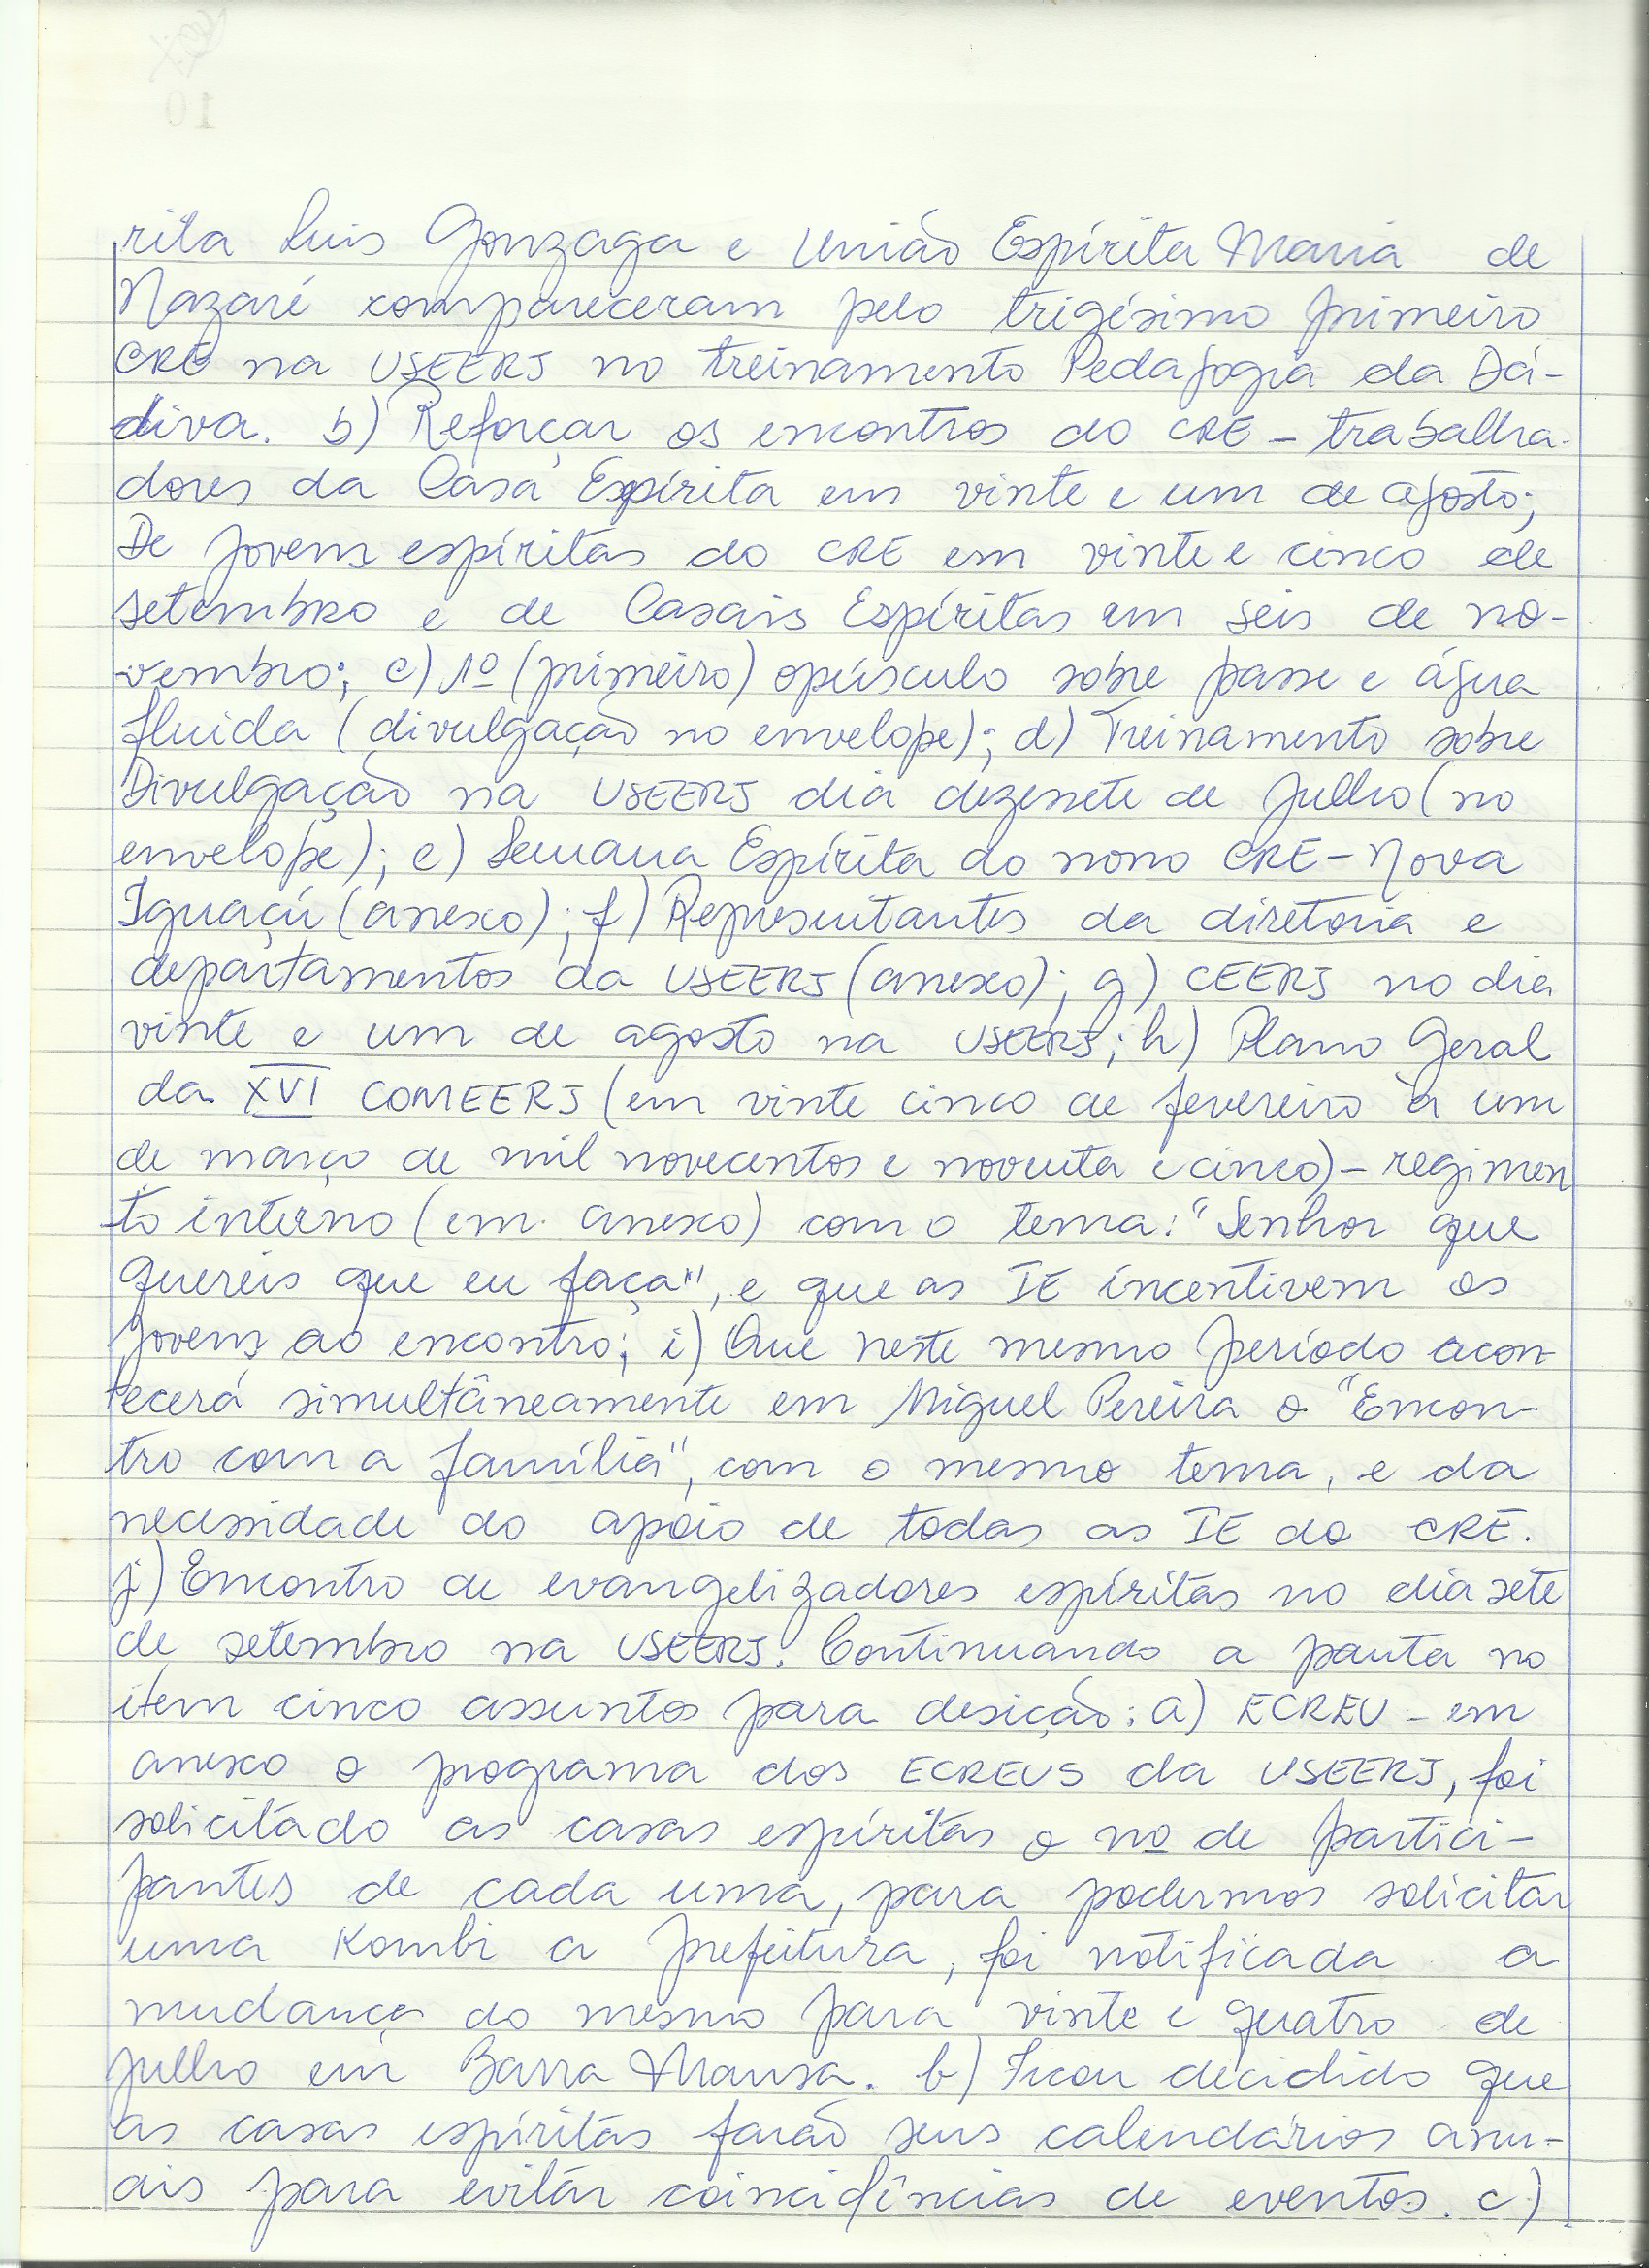 rita Luis Gonzaga e União Espírita Maria de
Nazaré compareceram pelo trigésimo primeiro
CRE na USEERJ no treinamento Pedagogia da Dá-
diva. b) Reforçar os encontros do CRE - trabalha-
dores da Casa Espírita em vinte e um de agosto;
De jovens espíritas do CRE em vinte e cinco de
setembro e de Casais Espíritas em seis de no-
vembro; c) 1º (primeiro) opúsculo sobre passe e água
fluida (divulgação no envelope); d) Treinamento sobre
Divulgação na USEERJ dia dezessete de julho (no
envelope); e) Semana Espírita do nono CRE - Nova
Iguaçú (anexo); f) Representantes da diretoria e
departamentos da USEERJ (anexo); g) CEERJ no dia
vinte e um de agosto na USEERJ; h) Plano Geral
da XVI COMEERJ (em vinte cinco de fevereiro à um
de março de mil novecentos e noventa e cinco) - regimen
to interno (em anexo) com o tema: "Senhor que
quereis que eu faça", e que as IE incentivem os
jovens ao encontro; i) Que neste mesmo período acon-
tecerá simultâneamente em Miguel Pereira o "Encon-
tro com a família", com o mesmo tema, e da
necessidade do apoio de todas as IE do CRE.
j) Encontro de evangelizadores espíritas no dia sete
de setembro na USEERJ. Continuando a pauta no
ítem cinco assuntos para desição: a) ECREU - em
anexo o programa dos ECREUS da USEERJ, foi
solicitado as casas espíritas o nº de partici-
pantes de cada uma, para podermos solicitar
uma Kombi a prefeitura, foi notificada a
mudança do mesmo para vinte e quatro de
julho em Barra Mansa. b) Ficou decidido que
as casas espíritas farão seus calendários anu-
ais para evitar coincidências de eventos. c)
10